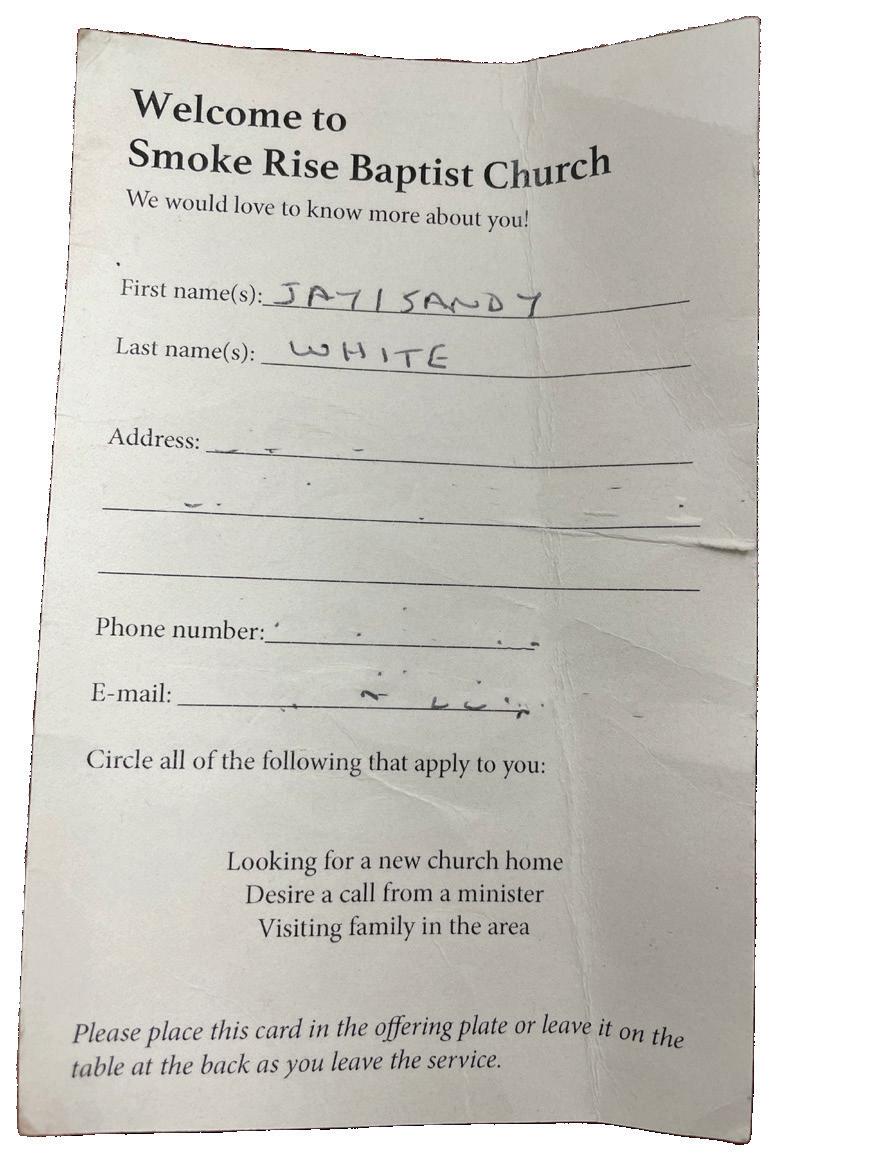 Welcome to
Smoke Rise Baptist Church
We would love to know more about you!
First name(s): JAY / SANDY
Last name(s): WHITE
Address:
Phone number:
E-mail:
Circle all of the following that apply to you:
Looking for a new church home
Desire a call from a minister
Visiting family in the area
Please place this card in the offering plate or leave it on the
table at the back as you leave the service.